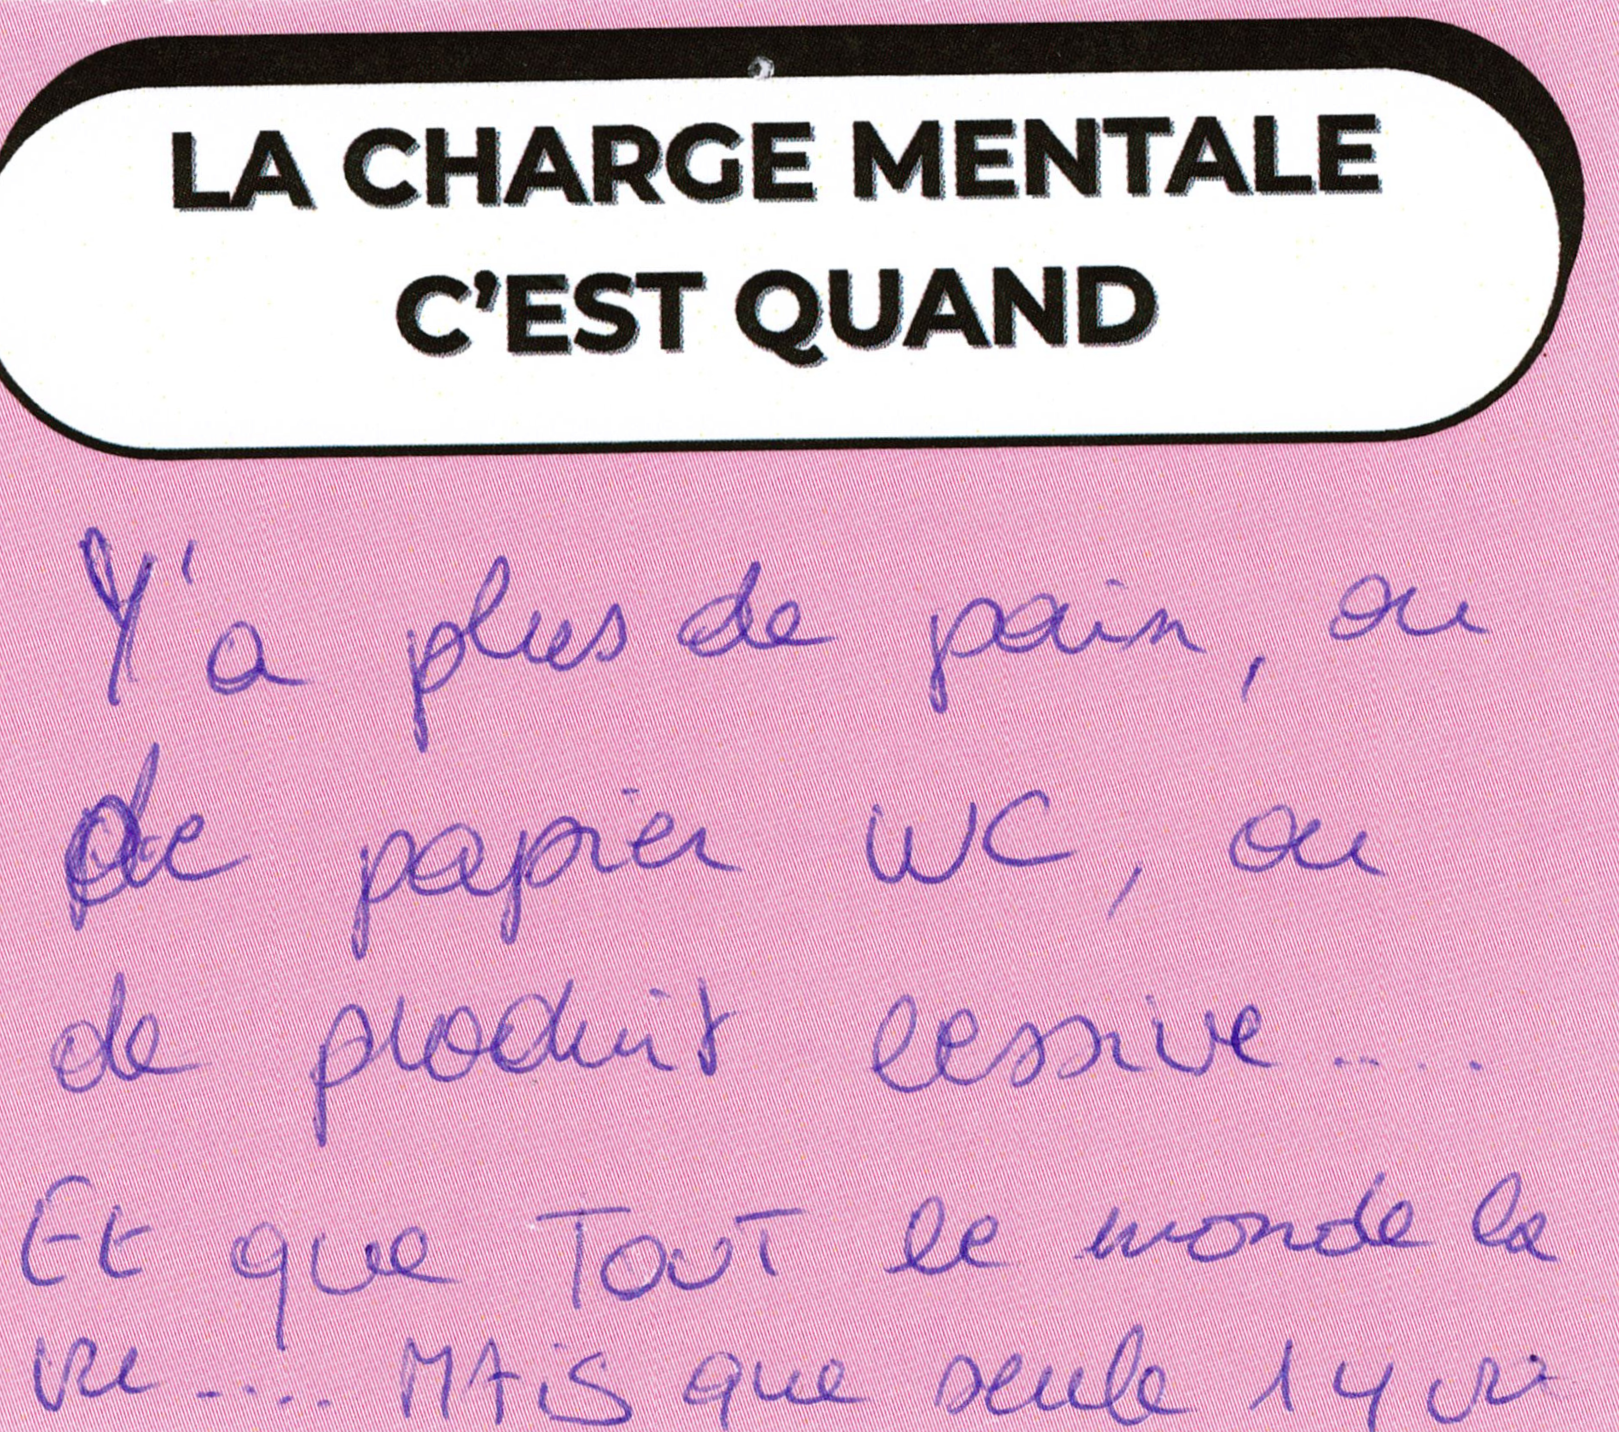 LA CHARGE MENTALE
C'EST QUAND
Y'a plus de pain, ou
de papier WC, ou
de produit lessive.....
Et que TOUT le monde la
vu.... MAiS que seule 1 y va